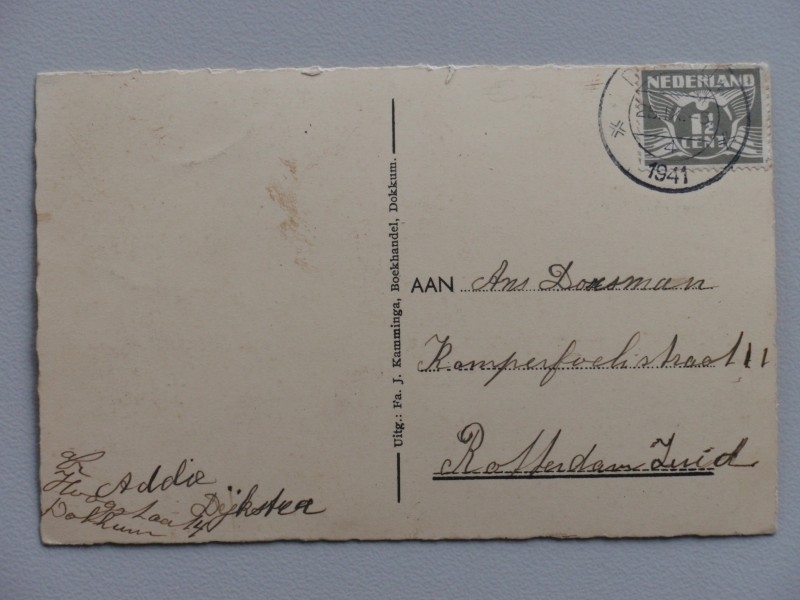 NEDERLAND
1½
CENT
1941
Uitg.: Fa. J. Kamminga, Boekhandel, Dokkum.
AAN Ans Doesman
Kamperfoeliestraat 11
Rotterdam Zuid
Addie
Dijkstra
Hoogstraat 14
Dokkum